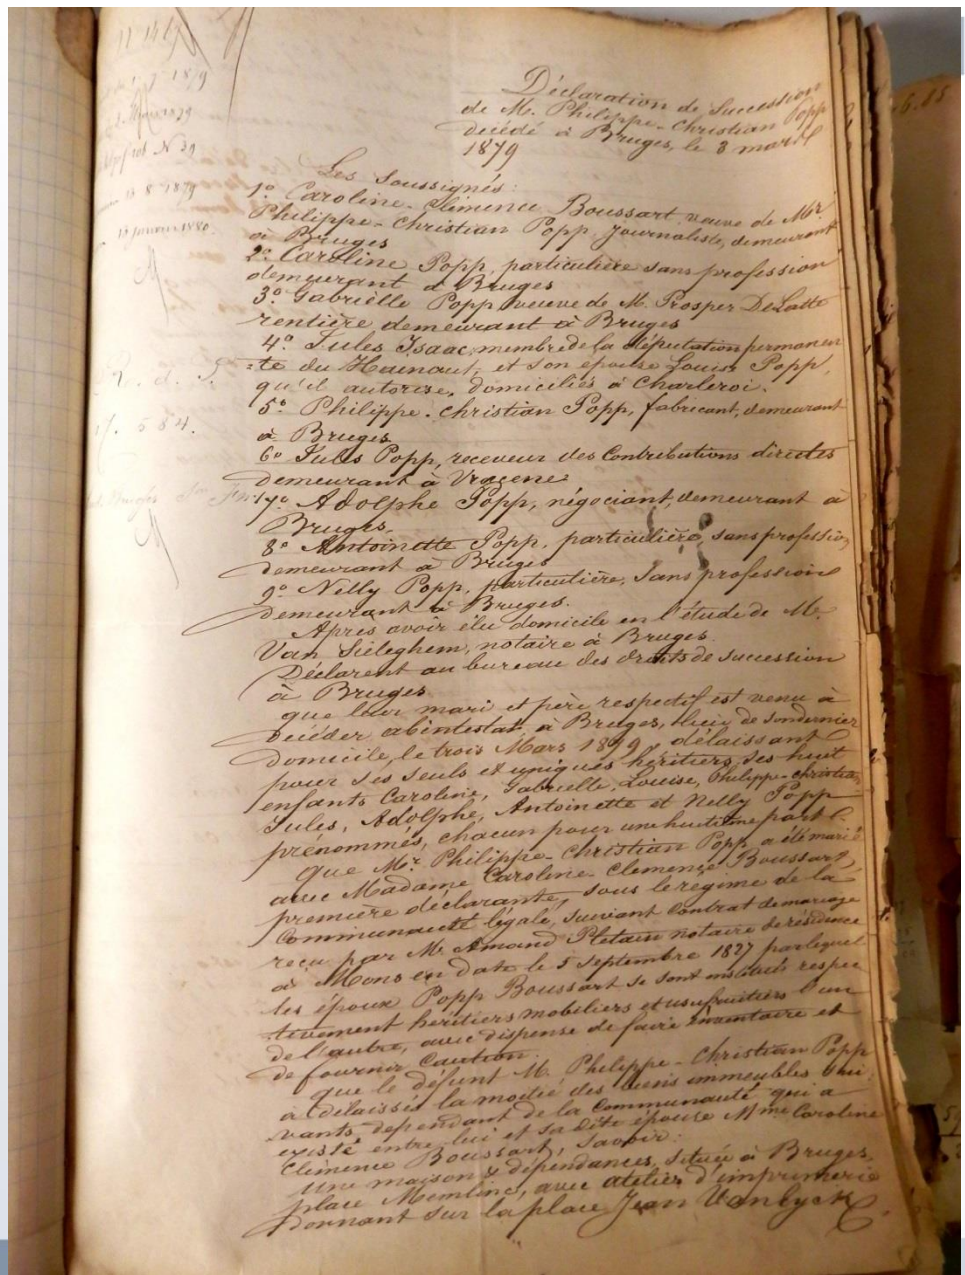 1879
N 39
8 1879
janvier 1880.
584.
Déclaration de Succession
de M. Philippe-Christian Popp
décédé à Bruges, le 3 mars
1879
Les Soussignés:
1º Caroline-Clémence Boussart veuve de Mr
Philippe-Christian Popp, Journaliste, demeurant
à Bruges
2º Caroline Popp, particulière sans profession
demeurant à Bruges
3º Gabrielle Popp veuve de M. Prosper DeLatte
rentière demeurant à Bruges
4º Jules Isaac, membre de la députation permanen
=te du Hainaut, et son épouse Louise Popp,
qu'il autorise, domiciliés à Charleroi.
5º Philippe-Christian Popp, fabricant, demeurant
à Bruges
6º Jules Popp, receveur des Contributions directes
demeurant à Vracene
7º Adolphe Popp, négociant, demeurant à
Bruges.
8º Antoinette Popp, particulière, sans profession,
demeurant à Bruges
9º Nelly Popp, particulière, sans profession
demeurant à Bruges.
Après avoir élu domicile en l'étude de M.
Van Sieleghem, notaire à Bruges.
Déclarent au bureau des droits de succession
à Bruges
que leur mari et père respectif est venu à
décéder abintestat à Bruges, lieu de son dernier
domicile, le trois Mars 1879, délaissant
pour ses seuls et uniques héritiers ses huit
enfants Caroline, Gabrielle, Louise, Philippe-Christian,
Jules, Adolphe, Antoinette et Nelly Popp
prénommés, chacun pour une huitième part.
Que Mr Philippe-Christian Popp a été marié
avec Madame Caroline-Clemence Boussart,
première déclarante, sous le regime de la
Communauté légale, suivant Contrat de mariage
reçu par M. Amand Pletain notaire de résidence
à Mons en date le 5 septembre 1827 par lequel
les époux Popp Boussart se sont institués respec
tivement héritiers mobiliers et usufruitiers l'un
de l'autre, avec dispense de faire inventaire et
de fournir Caution.
que le défunt M. Philippe-Christian Popp
a délaissé la moitié des biens immeubles sui
vants dependant de la Communauté qui a
existé entre lui et sa dite épouse Mme Caroline
Clémence Boussart, savoir:
Une maison & dépendances, située à Bruges,
place Memlinc, avec atelier d'imprimerie
donnant sur la place Jean Van Eyck